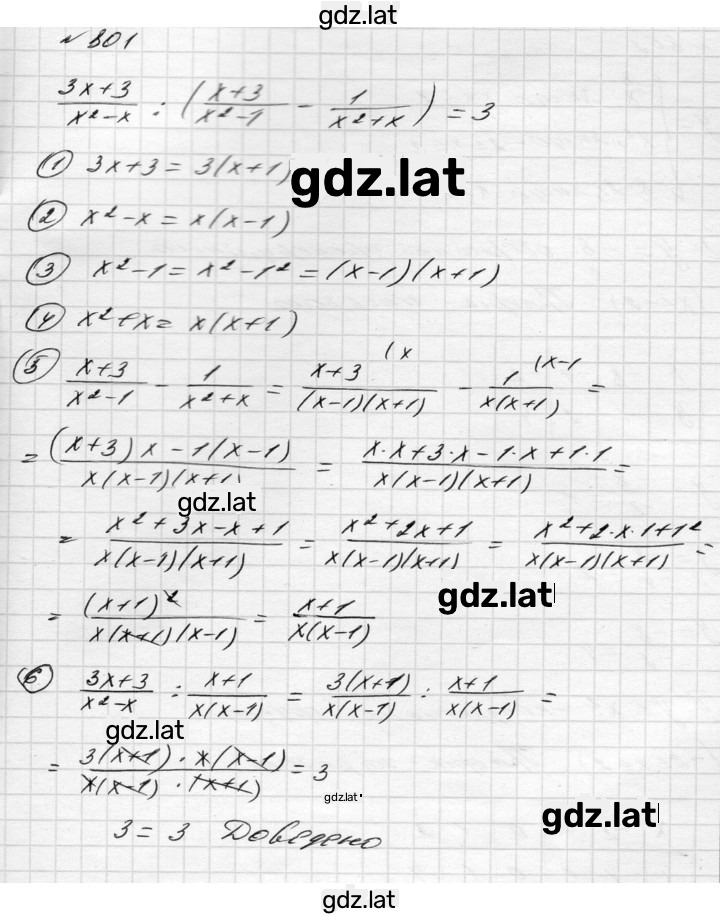 gdz.lat
№ 801
(3x+3)/(x²-x) : ((x+3)/(x²-1) - 1/(x²+x)) = 3
① 3x+3 = 3(x+1)
gdz.lat
② x²-x = x(x-1)
③ x²-1 = x²-1² = (x-1)(x+1)
④ x²+x = x(x+1)
⑤ (x+3)/(x²-1) - 1/(x²+x) = (x+3)/((x-1)(x+1)) (x - 1/(x(x+1)) (x-1 =
= ((x+3)x-1(x-1))/(x(x-1)(x+1)) = (x·x+3·x-1·x+1·1)/(x(x-1)(x+1)) =
gdz.lat
= (x²+3x-x+1)/(x(x-1)(x+1)) = (x²+2x+1)/(x(x-1)(x+1)) = (x²+2·x·1+1²)/(x(x-1)(x+1)) =
gdz.lat
= (x+1)²/(x(x+1)(x-1)) = (x+1)/(x(x-1))
⑥ (3x+3)/(x²-x) : (x+1)/(x(x-1)) = 3(x+1)/(x(x-1)) : (x+1)/(x(x-1)) =
gdz.lat
= (3(x+1)·x(x-1))/(x(x-1)·(x+1)) = 3
gdz.lat
gdz.lat
3 = 3 Доведено
gdz.lat